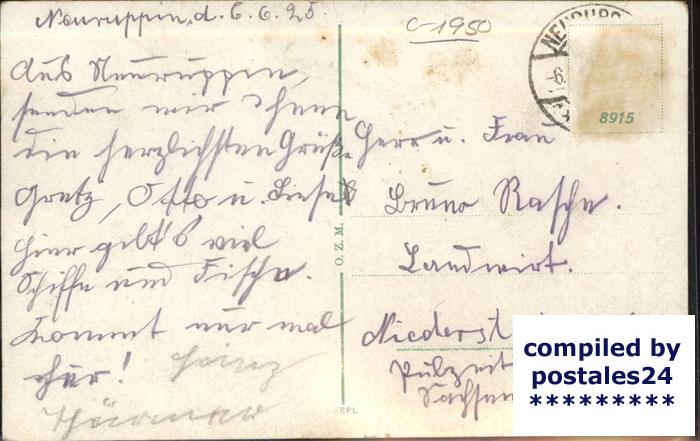 Neuruppin, d. 6.6.25.
C-1950
Aus Neuruppin,
senden wir Ihnen
die herzlichsten Grüße
Gretz, Otto u. Liesel
Hier gibt's viel
Schiffe und Fische.
Kommt nur mal
her! Heinz
Thürmer
O.Z.M.
SEPL
-6.
8915
Herr u. Frau
Bruno Rasche.
Landwirt.
Niederst
Pulznit
Sachsen
compiled by
postales24
*********